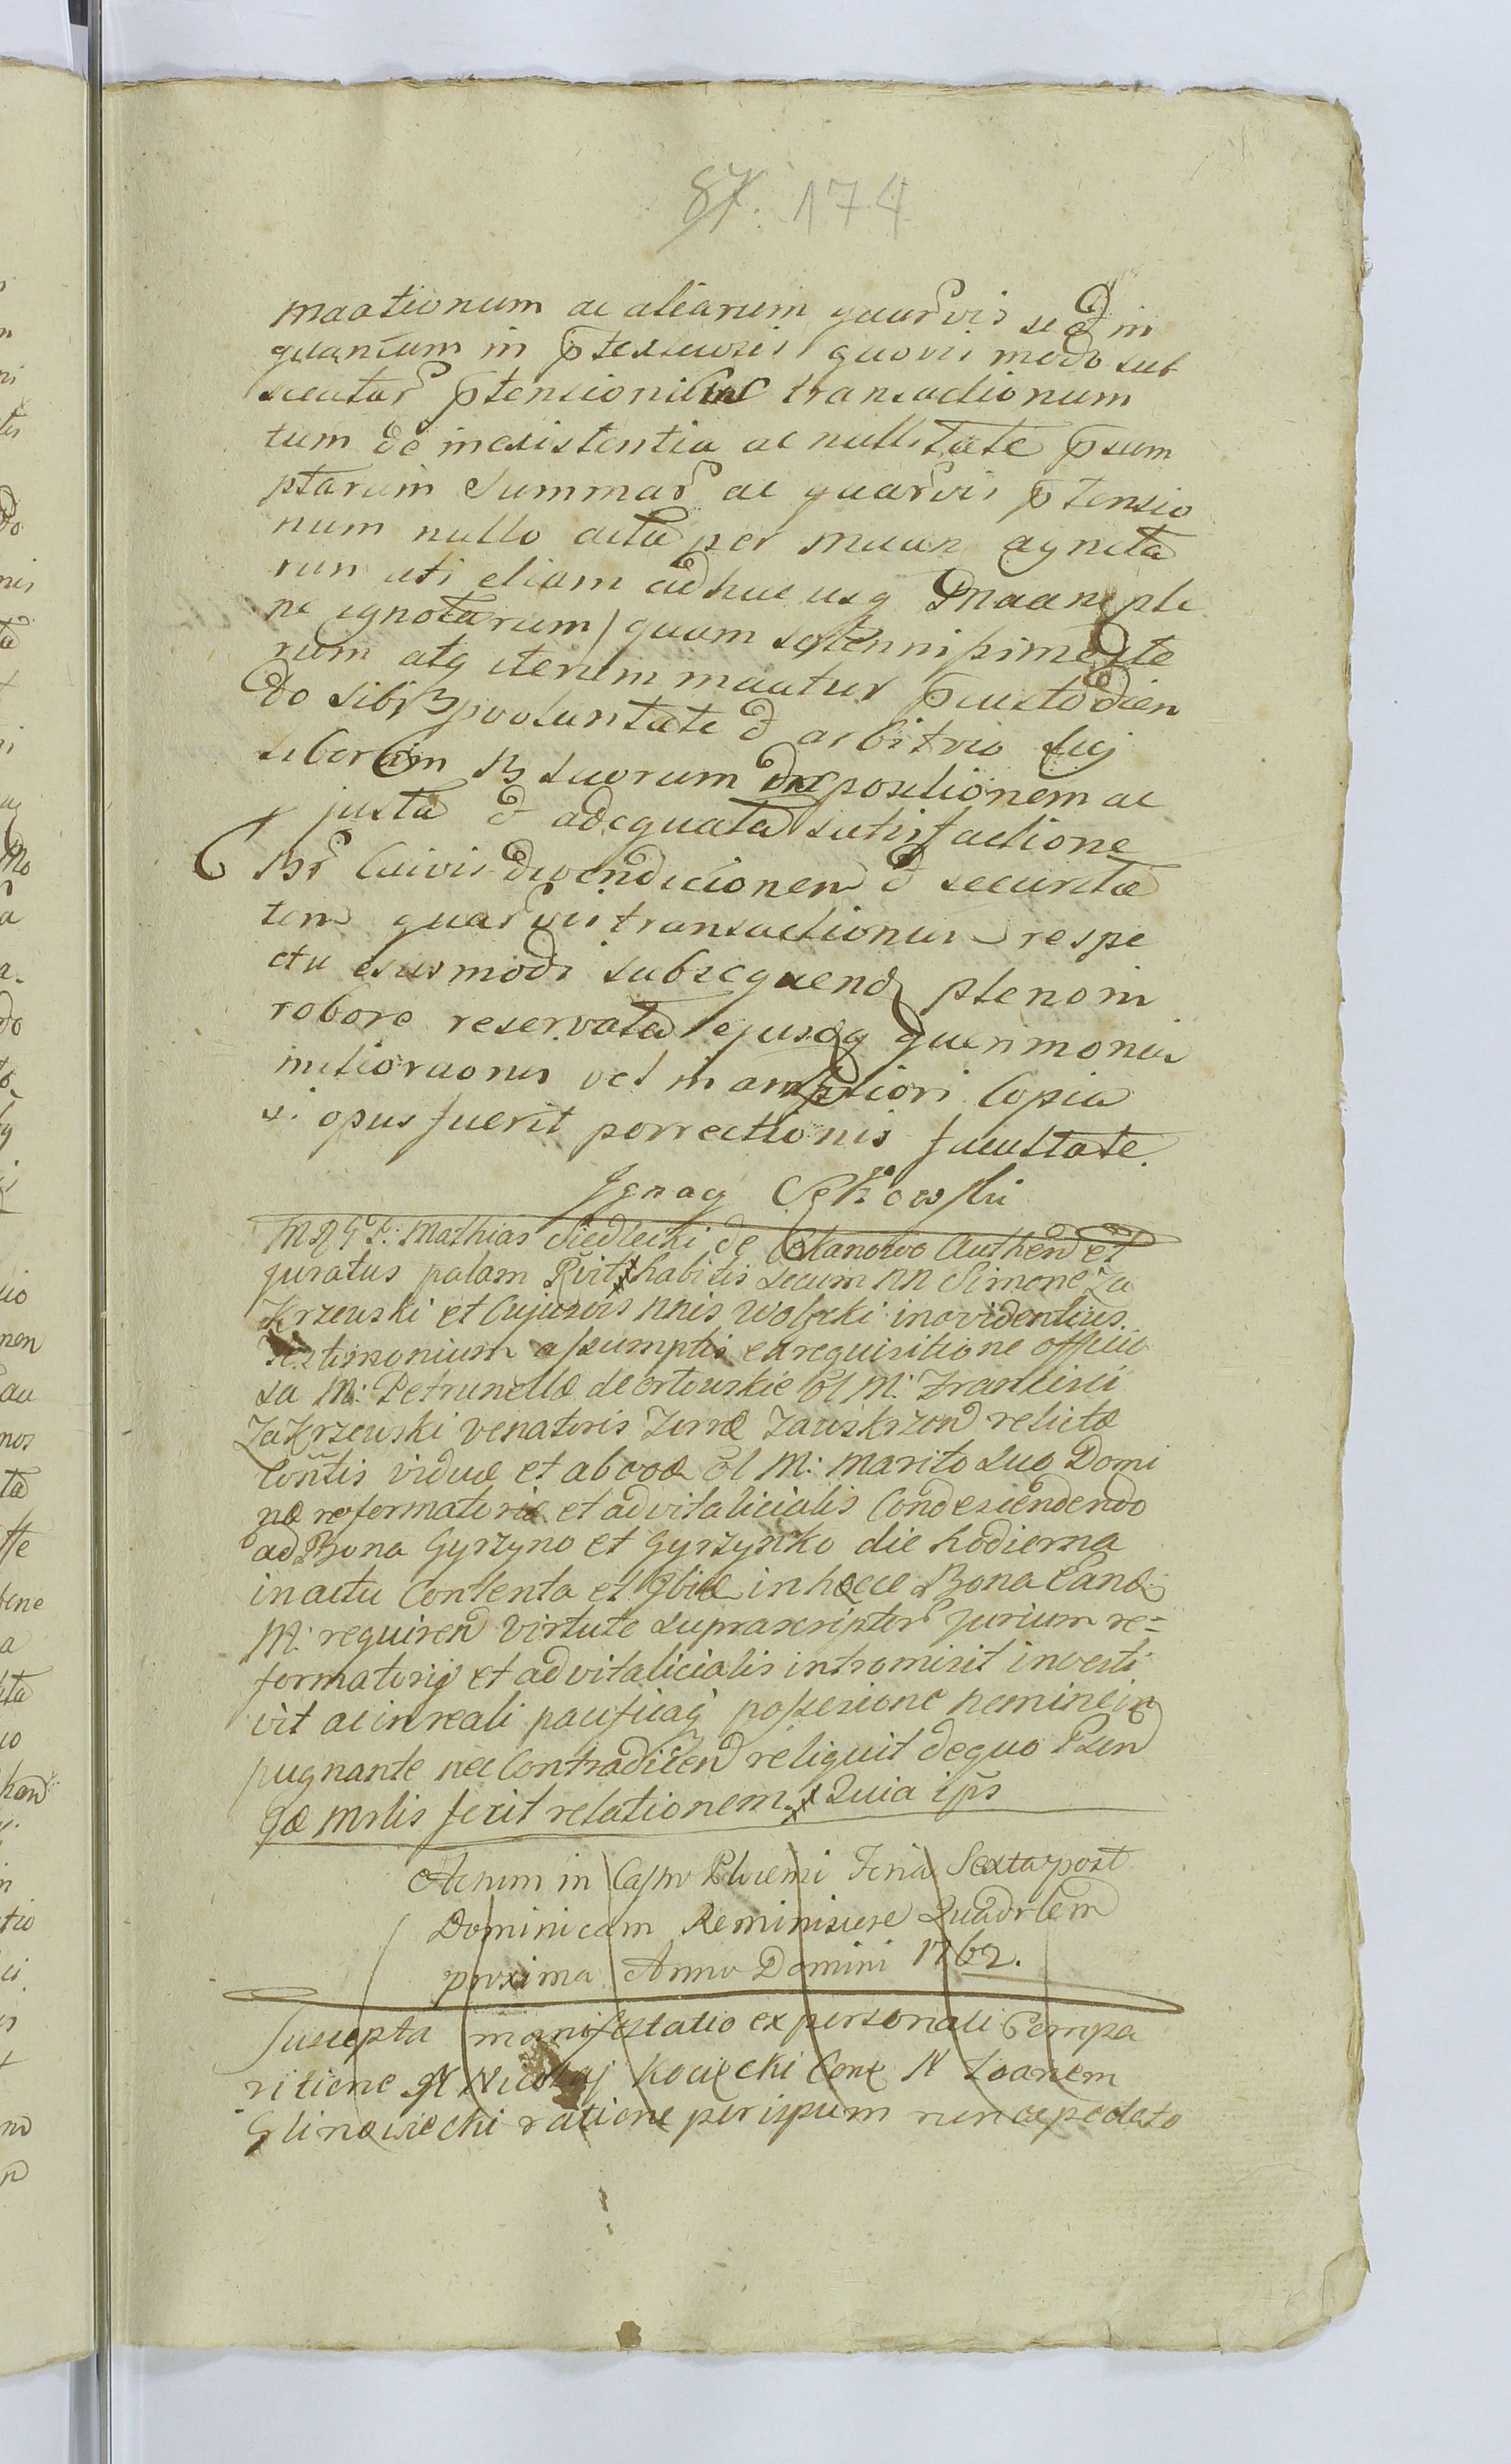 87. 174
maationum ac aliarum quarvis sed in
quantum in ptextuosis quovis modo sub
secutar ptensionibus transactionum
tum de inexistentia ac nullitate psum
ptarum Summar ac quarvis ptensio
num nullo actu per agnita
rum uti etiam adhuc usq ple
ne ignotarum quam solennissime Ite
rum atq iterum maatur pcustodien
do sibi voluntate & arbitrio sui
liberam suorum dispositionem ac
justa & adequata satisfactione
cuivis & securita
tem quarvis transactionum respe
ctu ejusmodi subsequend pleno in
robore reservata ejusdq querimonia
melioraonis vel in ampliori Copia
si opus fuerit porrectionis facultate.
Ignacy Sękowski
Mathias Siedlecki de Authen et
juratus palam habitis secum nn Simone Za
Krzewski et Cujusvis nnis Wolski in evidentius
Testimonium assumptis ex requisitione officio
sa M: Petrunella de Orłowskie olim M: Francisci
Zakrzewski Venatoris Terræ Zawskrzen relicta
Contis vidua et ab ol M: Marito Suo Domi
næ reformatoriæ et advitalicialis Condescendendo
ad Bona Gyrzyno et Gyrzynko die hodierna
in actu Contenta et Ibidē in hæce Bona Eand
M: requiren virtute suprascriptor Jurium re=
formatorij et advitalicialis intromisit investi
vit ac in reali pacificaq possesione nemine im
pugnante nec Contradicen reliquit de quo Psen
qæ Mrlis fecit relationem. Quia ips
Actum in Castro Plocensi Feria Sexta post
Dominicam Reminiscere Quadrlem
proxima Anno Domini 1762.
Suscepta manifestatio ex personali Compa
ritione N Nicolaj Kociecki Con N Joanem
Glinowiecki ratione per ipsum